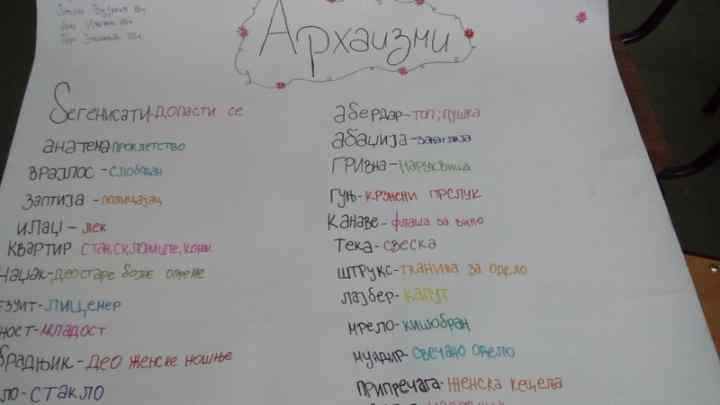 Архаизми
Бегенисати-допасти се
анатема проклетство
врајлос - слободан
заптија - полицајац
илаџ - лек
квартир стан, склониште, конак
-део старе бојне опреме
-лицемер
ност-младост
-део женске ношње
ло-стакло
абердар-топ, пушка
абаџија-занатлија
гривна-наруквица
гуњ-крзнени прслук
канаве-флаша за вино
тека-свеска
штрукс-тканина за одело
лајбер-капут
мрело-кишобран
-свечано одело
припречага-женска кецеља